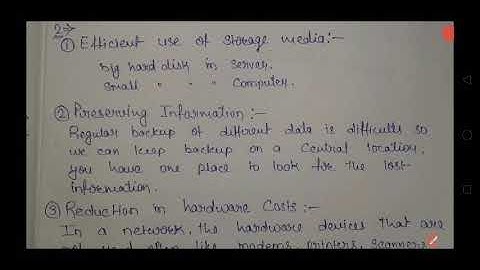 2→
① Efficient use of storage media:-
Big hard disk in server.
Small " " " Computer.
② Preserving Information:-
Regular backup of different data is difficult, so
we can keep backup on a Central location.
you have one place to look for the lost
information.
③ Reduction in hardware Costs:-
In a network, the hardware devices that are
not used often like modems, printers, scanners